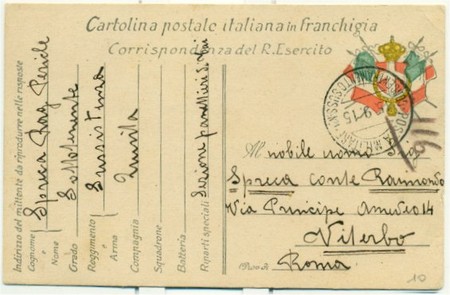 Cartolina postale italiana in franchigia
Corrispondenza del R. Esercito
Indirizzo del mittente da riprodurre nelle risposte
Cognome Spreca Rag. Pericle
Nome
Grado Sottotenente
Reggimento Sussistenza
Arma
Compagnia
Squadrone
Batteria
Riparti speciali Sezione panettieri
POSTA MILITARE
9.15
Al nobile uomo
Spreca conte Raimondo
Via Principe Amedeo 14
Viterbo
Roma
10